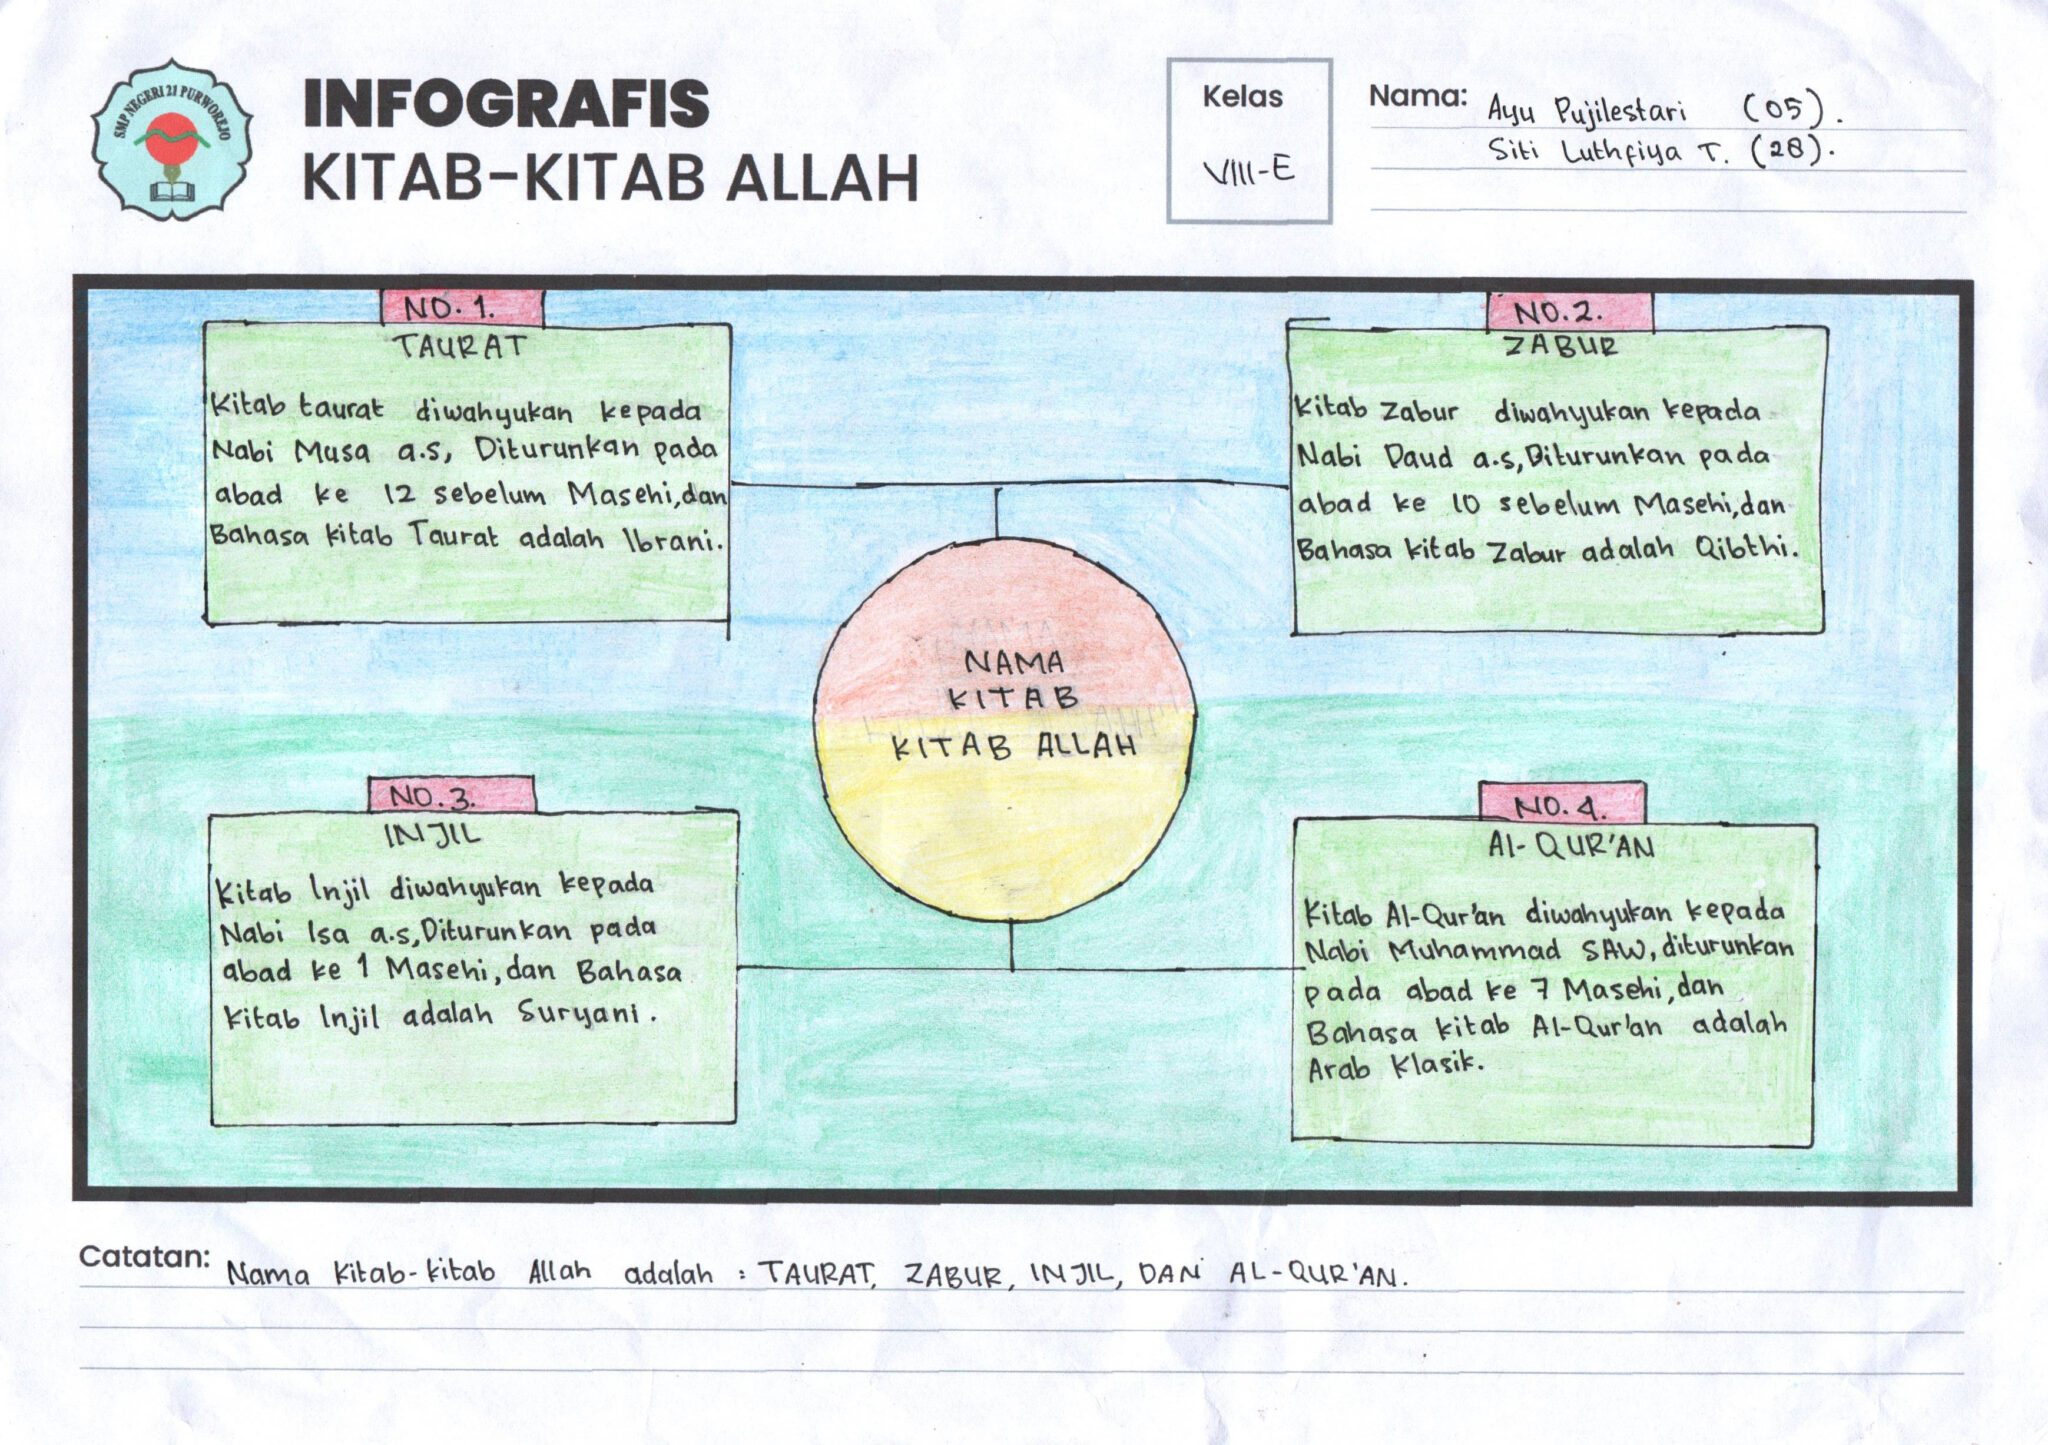 SMP NEGERI 21 PURWOREJO
INFOGRAFIS
KITAB-KITAB ALLAH
Kelas
VIII-E
Nama: Ayu Pujilestari (05).
Siti Luthfiya T. (28).
NO. 1.
TAURAT
Kitab taurat diwahyukan kepada
Nabi Musa a.s, Diturunkan pada
abad ke 12 sebelum Masehi, dan
Bahasa kitab Taurat adalah Ibrani.
NO. 2.
ZABUR
Kitab Zabur diwahyukan kepada
Nabi Daud a.s, Diturunkan pada
abad ke 10 sebelum Masehi, dan
Bahasa kitab Zabur adalah Qibthi.
NAMA
KITAB
KITAB ALLAH
NO. 3.
INJIL
Kitab Injil diwahyukan kepada
Nabi Isa a.s, Diturunkan pada
abad ke 1 Masehi, dan Bahasa
kitab Injil adalah Suryani.
NO. 4.
Al-QUR'AN
Kitab Al-Qur'an diwahyukan kepada
Nabi Muhammad SAW, diturunkan
pada abad ke 7 Masehi, dan
Bahasa kitab Al-Qur'an adalah
Arab Klasik.
Catatan: Nama Kitab-kitab Allah adalah : TAURAT, ZABUR, INJIL, DAN AL-QUR'AN.